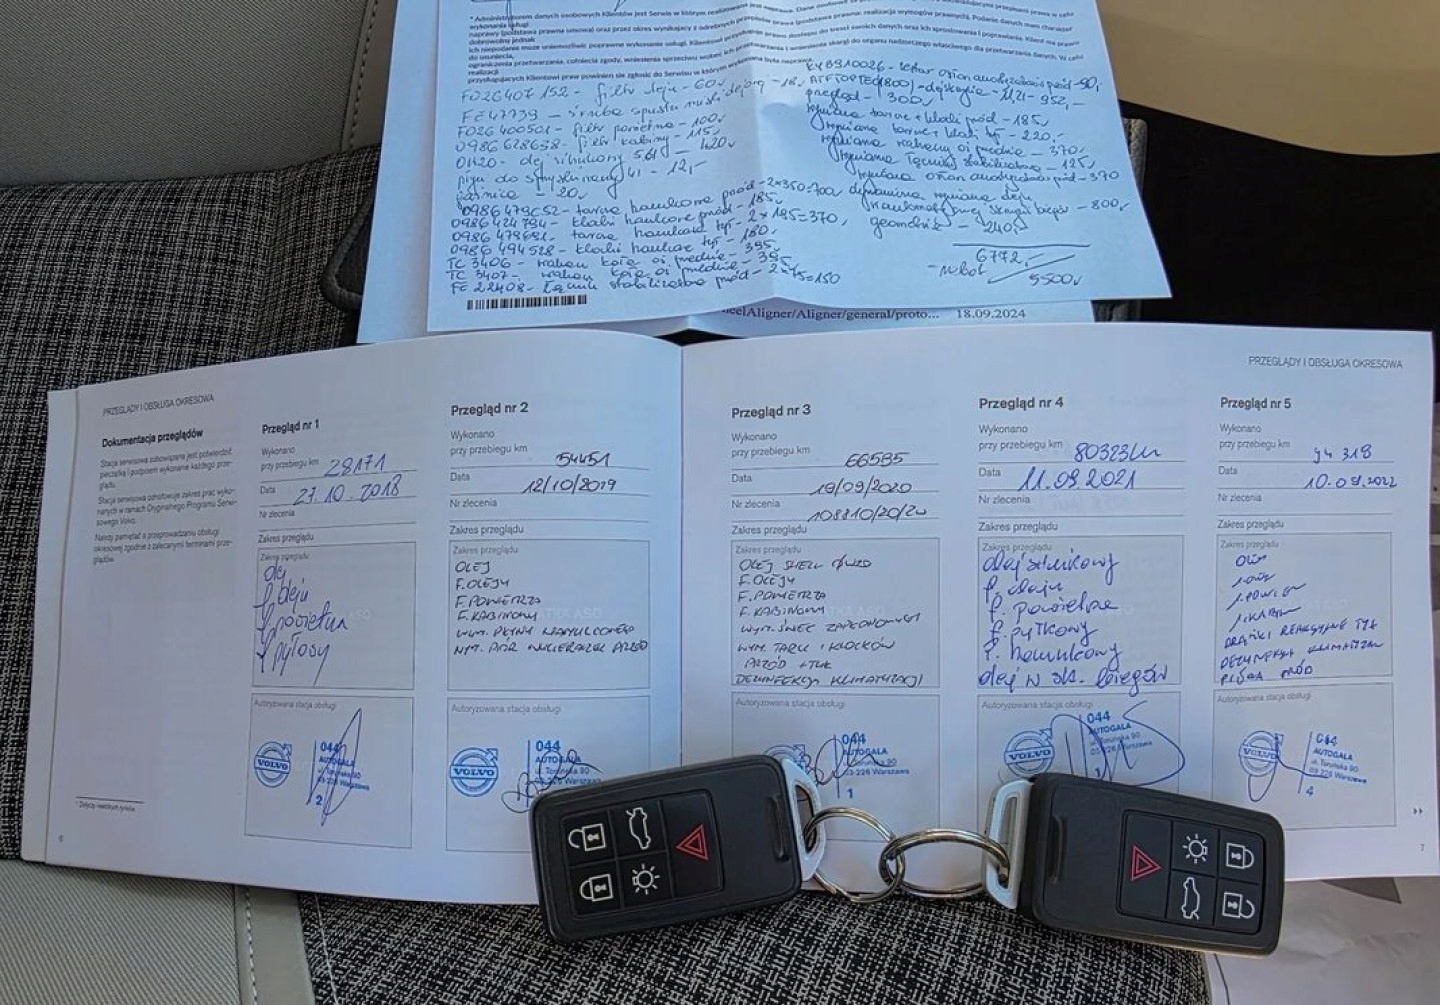 * Administratorem danych osobowych Klientów jest Serwis w którym realizowana jest naprawa. Dane osobowe
wykonania usługi
naprawy (podstawa prawna: umowa) oraz przez okres wynikający z odrębnych przepisów prawa (podstawa prawna: realizacja wymogów prawnych). Podanie danych ma charakter
dobrowolny jednak
ich niepodanie może uniemożliwić poprawne wykonanie usługi. Klientowi przysługuje prawo dostępu do treści swoich danych oraz ich sprostowania i poprawiania. Klient ma prawo
do usunięcia,
ograniczenia przetwarzania, cofnięcia zgody, wniesienia sprzeciwu wobec ich przetwarzania i wniesienia skargi do organu nadzorczego właściwego dla przetwarzania danych. W celu
realizacji
przysługujących Klientowi praw powinien się zgłosić do Serwisu w którym wykonana była naprawa
F026407152 - filtr oleju - 60
FE47739 - śruba spustu miski olejowej - 18
F026400501 - filtr powietrza - 100
0986628638 - filtr kabiny - 115
0W20 - olej silnikowy 5,6l - 420
płyn do spryskiwaczy 4l - 12,-
żarnica - 20
0986479C52 - tarcze hamulcowe przód - 2x350=700
0986424794 - klocki hamulcowe przód - 185
0986479691 - tarcze hamulcowe tył - 2x185=370
0986494528 - klocki hamulcowe tył - 180
TC3406 - wahacz koła oś przednia - 395
TC3407 - wahacz koła oś przednia - 395
FE22408 - łącznik stabilizatora przód - 2x75=150
KYB910026 - przód - 50,-
ATF - 952,-
przegląd - 300
wymiana tarcz + klocki przód - 185
wymiana tarcz + klocki tył - 220,-
wymiana wahaczy oś przednia - 370
wymiana łącznika stabilizatora - 125
wymiana osłon amortyzatorów przód - 370
dynamiczna wymiana oleju
w automatycznej skrzyni biegów - 800
geometria - 240
6772,-
- rabat
5500
eelAligner/Aligner/general/proto... 18.09.2024
PRZEGLĄDY I OBSŁUGA OKRESOWA
Dokumentacja przeglądów
Stacja serwisowa zobowiązana jest potwierdzić
pieczątką i podpisem wykonanie każdego prze-
glądu.
Stacja serwisowa odnotowuje zakres prac wyko-
nanych w ramach Oryginalnego Programu Serwi-
sowego Volvo.
Należy pamiętać o przeprowadzaniu obsługi
okresowej zgodnie z zalecanymi terminami prze-
glądów.
6
Przegląd nr 1
Wykonano
przy przebiegu km 28171
Data 27.10.2018
Nr zlecenia
Zakres przeglądu
Zakres przeglądu
olej
f. oleju
f. powietrza
f. pyłowy
Autoryzowana stacja obsługi
VOLVO
044
AUTOGALA
ul. Toruńska 90
03-226 Warszawa
2
Przegląd nr 2
Wykonano
przy przebiegu km 54451
Data 12/10/2019
Nr zlecenia
Zakres przeglądu
Zakres przeglądu
OLEJ
F.OLEJU
F.POWIETRZA
F.KABINOWY
WYM. PŁYNU HAMULCOWEGO
WYT. PIÓR WYCIERACZEK PRZÓD
Autoryzowana stacja obsługi
VOLVO
044
AUTOGALA
ul. Toruńska 90
03-226 Warszawa
PRZEGLĄDY I OBSŁUGA OKRESOWA
Przegląd nr 3
Wykonano
przy przebiegu km 66585
Data 19/09/2020
Nr zlecenia 108810/20/Zw
Zakres przeglądu
Zakres przeglądu
OLEJ SHELL 0W20
F.OLEJU
F.POWIETRZA
F.KABINOWY
WYM. ŚWIEC ZAPŁONOWYCH
WYM. TARCZ I KLOCKÓW
PRZÓD + TYŁ
DEZYNFEKCJA KLIMATYZACJI
Autoryzowana stacja obsługi
044
AUTOGALA
ul. Toruńska 90
03-226 Warszawa
1
Przegląd nr 4
Wykonano
przy przebiegu km 80323km
Data 11.09.2021
Nr zlecenia
Zakres przeglądu
Zakres przeglądu
olej silnikowy
f. oleju
f. powietrza
f. pyłkowy
p. hamulcowy
olej w sk. biegów
Autoryzowana stacja obsługi
VOLVO
044
AUTOGALA
ul. Toruńska 90
03-226 Warszawa
1
Przegląd nr 5
Wykonano
przy przebiegu km 94 318
Data 10.09.2022
Nr zlecenia
Zakres przeglądu
Zakres przeglądu
DRĄŻKI REAKCYJNE TYŁ
DEZYNFEKCJA KLIMATYZACJI
PIÓRA PRZÓD
Autoryzowana stacja obsługi
VOLVO
044
AUTOGALA
ul. Toruńska 90
03-226 Warszawa
4
7